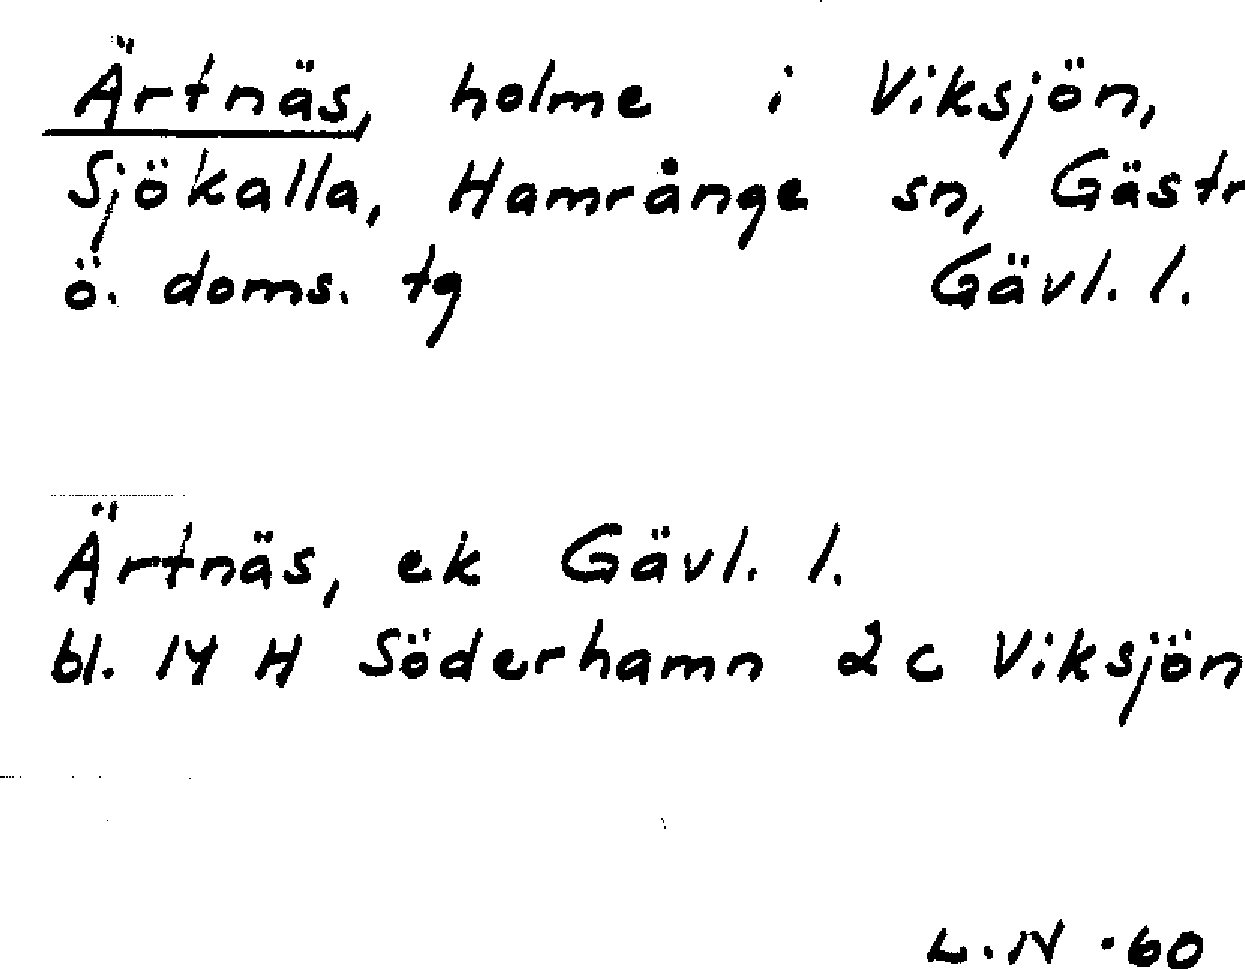 Ärtnäs, holme i Viksjön,
Sjökalla, Hamrånge sn, Gästr
ö. doms. tg Gävl. l.
Ärtnäs, ek Gävl. l.
bl. 14 H Söderhamn 2 c Viksjön
L. N. 60